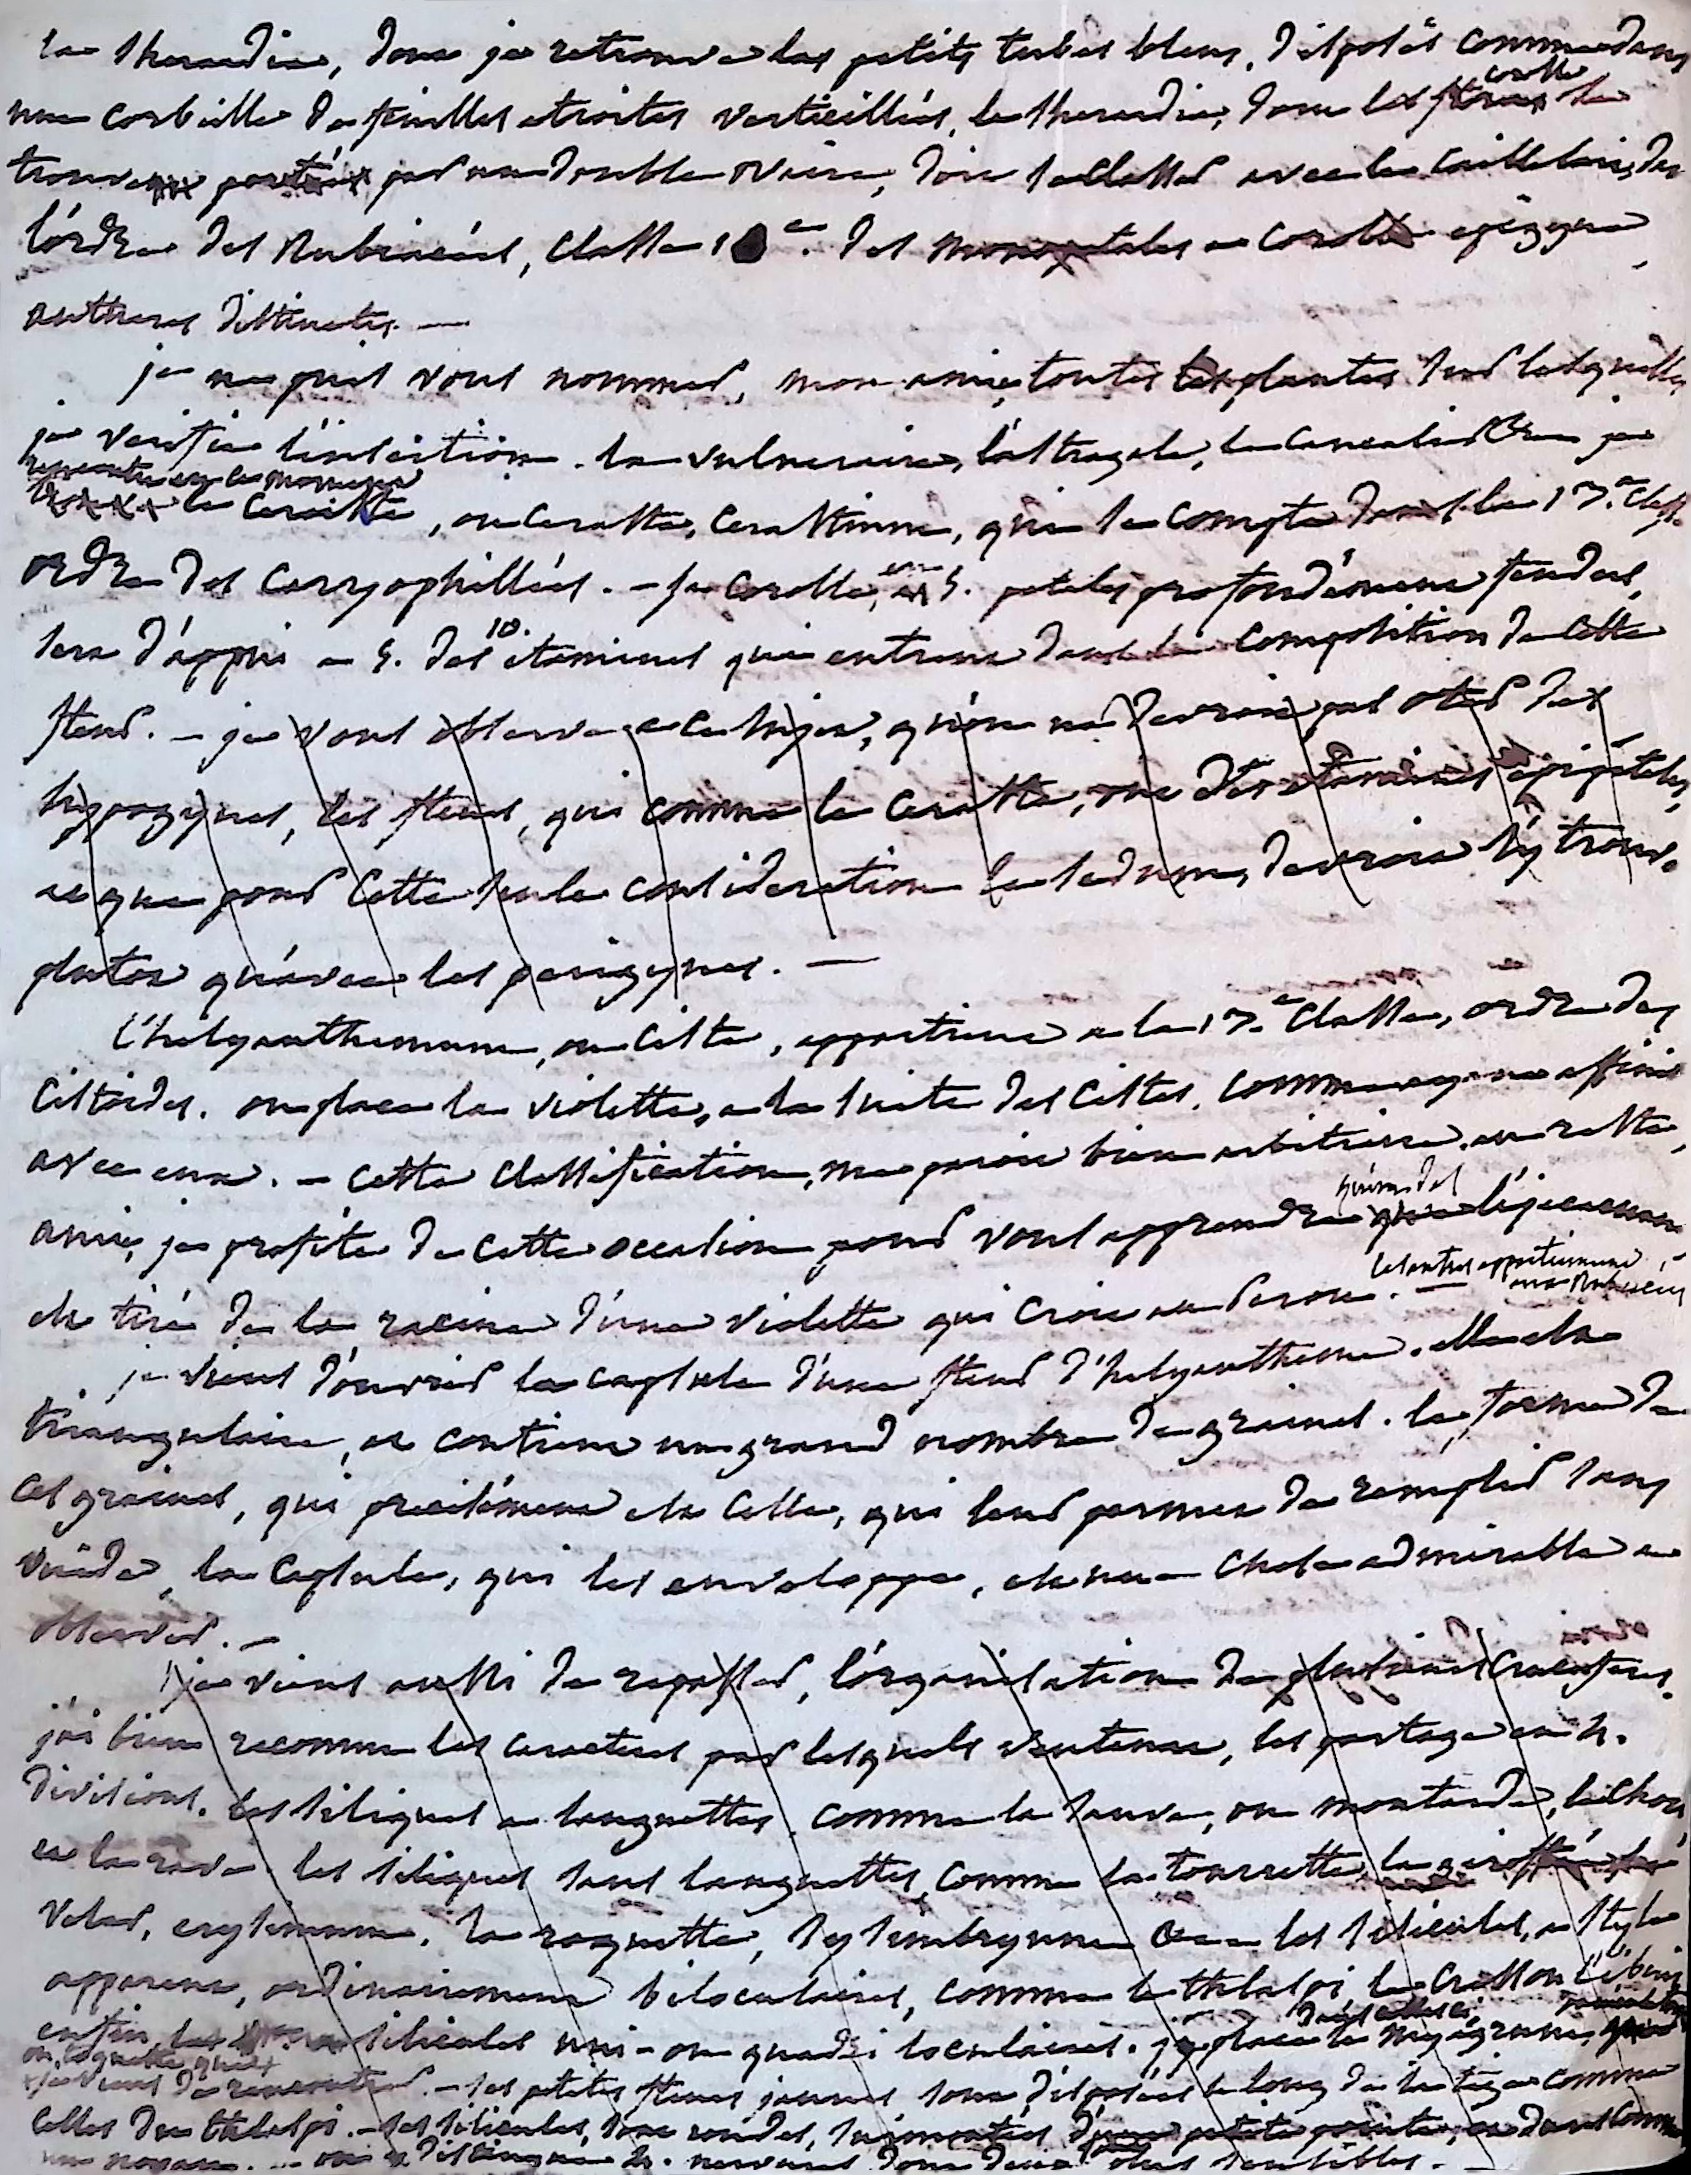 la Sherardia, dont je retrouve les petits tubes bleus, disposés comme dans
une corbeille de feuilles etroites verticillées, la Sherardia, dont la corolle se
trouve portée par un double ovaire, doit se classer avec le caillelait, de
l'ordre des Rubiacées, classe 10e. des monopetales a corole epigyne,
antheres distinctes. —
je ne puis vous nommer, mon amie, toutes les plantes sur lesquelles
je verifie l'insertion. la vulneraire, l'astragale, la cameline &c je
rencontre en ce moment
la ceraiste, ou ceraste, cerastium, qui se compte dans la 17.e classe
ordre des carryophillées. — sa corolle, en 5. petales profondement fendus,
sert d'appui a 5. des 10. etamines qui entrent dans la composition de cette
fleur. — je vous observe a ce sujet, qu'on ne devroit pas oter des
hypogynes, les fleurs, qui comme la ceraste, ont des etamines epipetales,
et que pour cette seule consideration le sedum, devroit s'y trouver
plutot qu'avec les perigynes. —
l'helyanthemum, ou ciste, appartient a la 17.e classe, ordre des
cistoides. on place la violette, a la suite des cistes, comme ayant affinité
avec eux. — cette classification, me paroit bien arbitraire. au reste,
amie, je profite de cette occasion pour vous apprendre qu'un des ipecacuana
les autres appartiennent aux Rubiacées
est tiré de la racine d'une violette qui croit au Perou. —
je viens d'ouvrir la capsule d'une fleur d'helyantheme. elle est
triangulaire, et contient un grand nombre de graines. la forme de
ces graines, qui precisément est celle, qui leur permet de remplir sans
vuide, la capsule, qui les enveloppe, est une chose admirable a
observer. —
je viens aussi de repasser, l'organisation de plusieurs cruciferes.
j'ai bien reconnu les caracteres par lesquels Ventenat, les partage en 4.
divisions. les siliques a languettes, comme la sauve, ou moutarde, le chou,
et la rave. les siliques sans languettes, comme la tourrette, la giroflée, le
velar, erysimum, la roquette, sysimbryum &c — les silicules, a style
apparent, ordinairement biloculaires, comme le thlaspi, le cresson,
enfin les silicules uni- ou quadri loculaires. je place dans celles ci le myagrum,
je viens de rencontrer. — les petites fleurs jaunes sont disposées le long de la tige comme
celles du thlaspi. — les silicules, sont rondes, surmontées d'une petite pointe, et dures comme
un noyau. — on y distingue 4. nervures dont deux sont plus sensibles. —